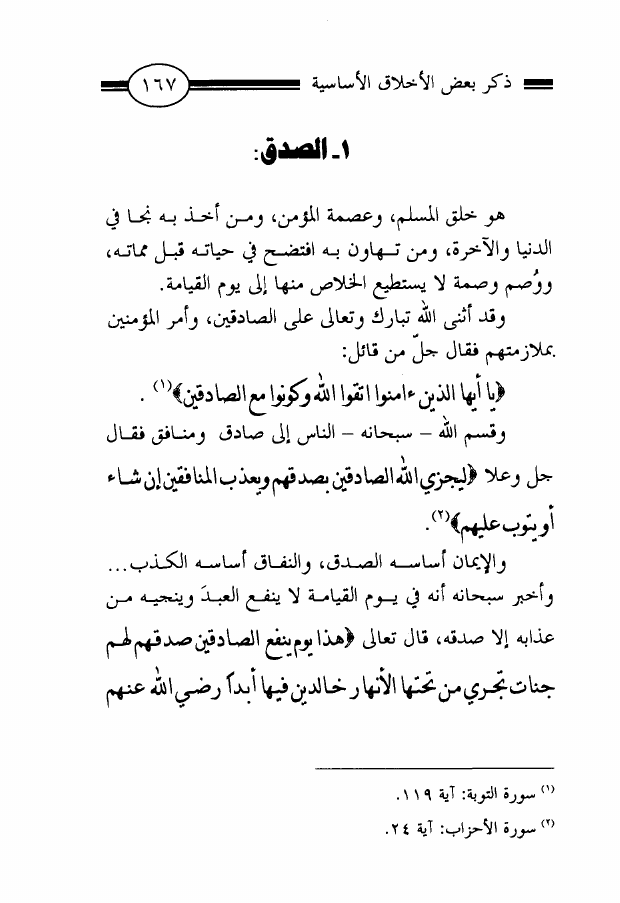 ذكر بعض الأخلاق الأساسية ١٦٧
١ـ الصدق:
هو خلق المسلم، وعصمة المؤمن، ومن أخذ به نجا في
الدنيا والآخرة، ومن تهاون به افتضح في حياته قبل مماته،
ووُصم وصمة لا يستطيع الخلاص منها إلى يوم القيامة.
وقد أثنى الله تبارك وتعالى على الصادقين، وأمر المؤمنين
بملازمتهم فقال جلّ من قائل:
﴿يا أيها الذين ءامنوا اتقوا الله وكونوا مع الصادقين﴾(١) .
وقسم الله – سبحانه – الناس إلى صادق ومنافق فقال
جل وعلا ﴿ليجزي الله الصادقين بصدقهم ويعذب المنافقين إن شاء
أو يتوب عليهم﴾(٢).
والإيمان أساسه الصدق، والنفاق أساسه الكذب...
وأخبر سبحانه أنه في يوم القيامة لا ينفع العبدَ وينجيه من
عذابه إلا صدقه، قال تعالى ﴿هذا يوم ينفع الصادقين صدقهم لهم
جنات تجري من تحتها الأنهار خالدين فيها أبداً رضي الله عنهم
(١) سورة التوبة: آية ١١٩.
(٢) سورة الأحزاب: آية ٢٤.